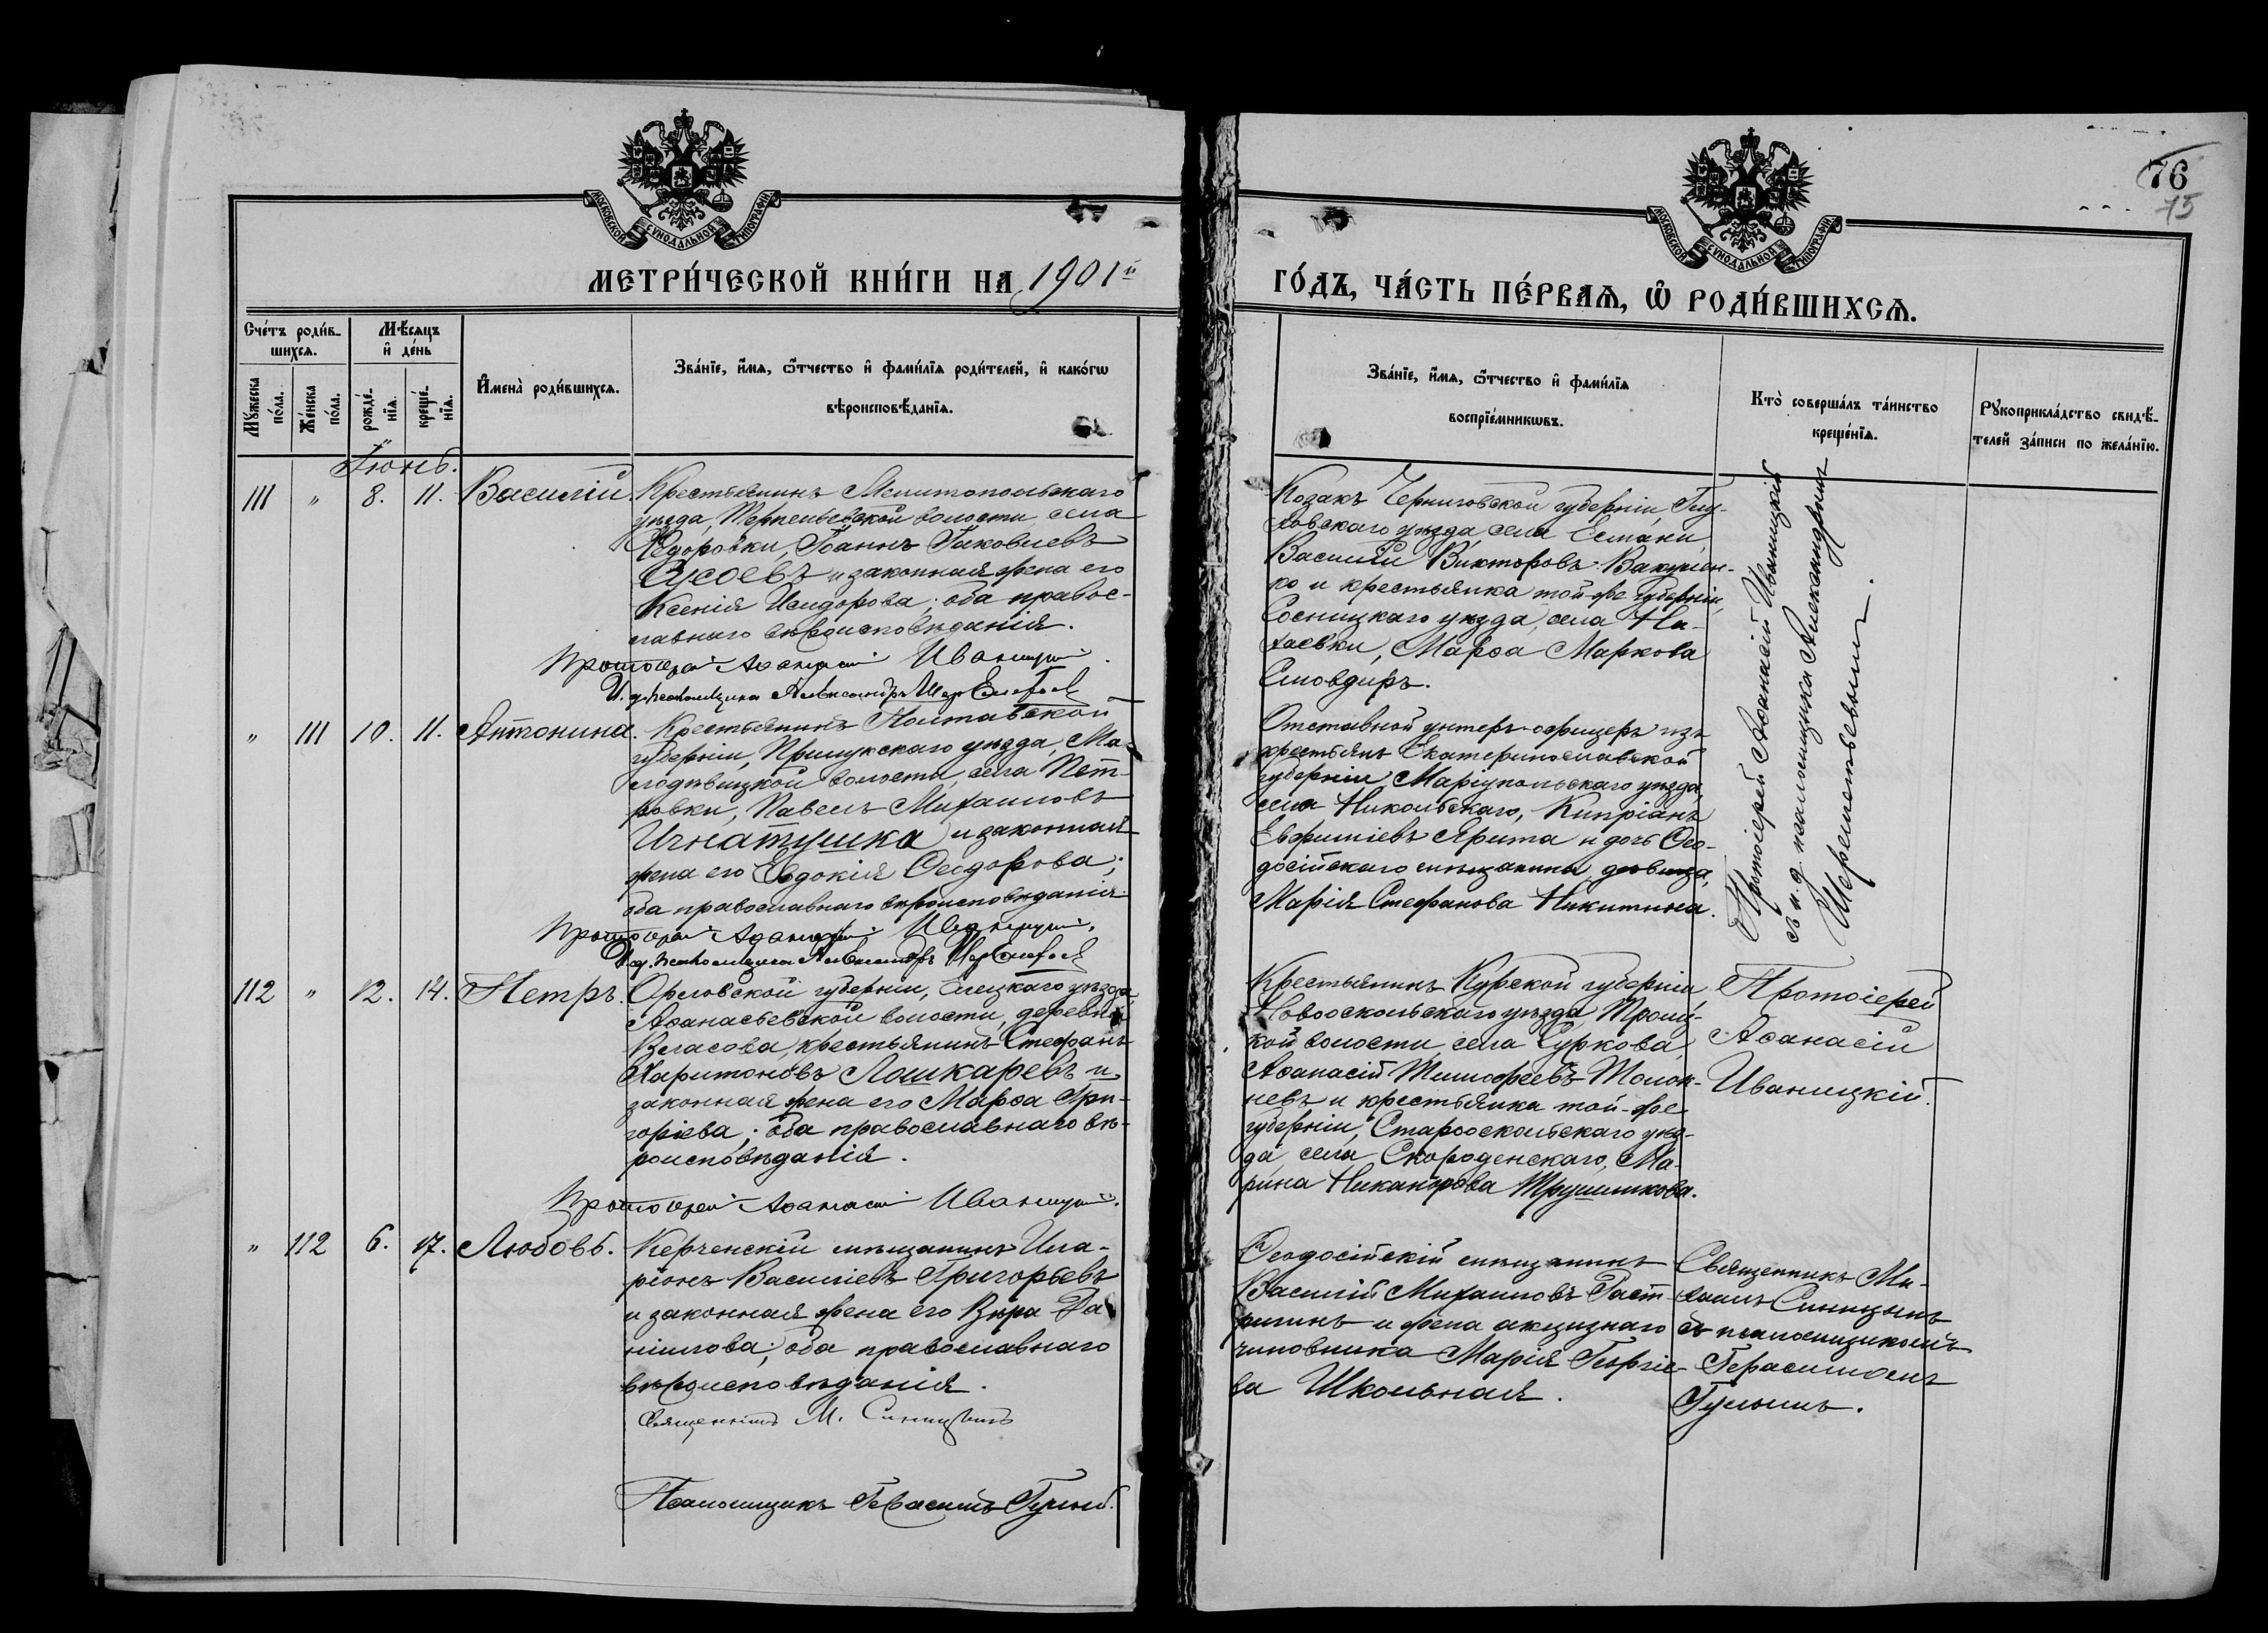 76
75
МОСКОВСКОЙ СѴНОДАЛЬНОЙ ТИПОГРАФІИ
МОСКОВСКОЙ СѴНОДАЛЬНОЙ ТИПОГРАФІИ
МЕТРИ́ЧЕСКОЙ КНИ́ГИ НА 1901й
ГО́ДЪ, ЧА́СТЬ ПЕ́РВАѦ, Ѡ҆ РОДИ́ВШИХСѦ.
Сче́тъ роди́в-
шихсѧ.
Мꙋ́жеска по́ла.
Же́нска по́ла.
Мѣ́сѧцъ
и҆ де́нь
рожде́-
нїѧ.
креще́-
нїѧ.
И҆мена̀ роди́вшихсѧ.
Зва́нїе, и҆́мѧ, ѻ҆́тчество и҆ фами́лїѧ роди́телей, и҆ како́гѡ
вѣроисповѣ́данїѧ.
Зва́нїе, и҆́мѧ, ѻ҆́тчество и҆ фами́лїѧ
воспрїе́мникѡвъ.
Кто̀ соверша́лъ та́инство
креще́нїѧ.
Рꙋкоприкла́дство свидѣ́-
телей за́писи по жела́нїю.
Іюнь.
111 " 8. 11. Василій.
Крестьянинъ Мелитопольскаго
уѣзда, Терпеньевской волости, села
Ѳедоровки, Іоаннъ Іаковлевъ
Сусоевъ и законная жена его
Ксенія Исидорова; оба правос-
лавнаго вѣроисповѣданія.
Протоіерей Аѳанасій Иваницкій.
И. д. псаломщика Александръ
Козакъ Черниговской губерніи, Глу-
ховскаго уѣзда, села Есмани,
Василій Викторовъ Вакулен-
ко и крестьянка той-же губерніи,
Сосницкаго уѣзда, села На-
таевки, Марѳа Маркова
Смовдырь.
Протоіерей Аѳанасій Иваницкій
съ и. д. псаломщика Александромъ
Шереметьевымъ.
" 111 10. 11. Антонина.
Крестьянинъ Полтавской
губерніи, Прилукскаго уѣзда, Ма-
лодѣвицкой волости, села Пет-
ровки, Павелъ Михаиловъ
Игнатушка и законная
жена его Евдокія Ѳеодорова;
оба православнаго вѣроисповѣданія.
Протоіерей Аѳанасій Иваницкій.
И. д. псаломщика Александръ
Отставной унтеръ-офицеръ изъ
крестьянъ Екатеринославской
губерніи Маріупольскаго уѣзда,
села Никольскаго, Кипріанъ
Евфиміевъ Ярита и дочь Ѳео-
досійскаго мѣщанина, дѣвица,
Марія Стефанова Никитина.
112 " 12. 14. Петръ.
Орловской губерніи, Елецкаго уѣзда
Аѳанасьевской волости, деревни
Власова, крестьянинъ Стефанъ
Харитоновъ Лошкаревъ и
законная жена его Марѳа Гри-
горіева; оба православнаго вѣ-
роисповѣданія.
Протоіерей Аѳанасій Иваницкій.
Крестьянинъ Курской губерніи,
Новооскольскаго уѣзда Троиц-
кой волости, села Суркова,
Аѳанасій Тимофеевъ Толок-
невъ и крестьянка той-же
губерніи, Старооскольскаго уѣз-
да села Скороденскаго, Ма-
рина Никанорова Трушникова.
Протоіерей
Аѳанасій
Иваницкій.
" 112 6. 17. Любовь.
Керченскій мѣщанинъ Ила-
ріонъ Василіевъ Григорьевъ
и законная жена его Вѣра Да-
ніилова; оба православнаго
вѣроисповѣданія.
Священникъ М. Синицынъ
Псаломщикъ Герасимъ
Ѳеодосійскій мѣщанинъ
Василій Михаиловъ Раст-
ригинъ и жена акцизнаго
чиновника Марія Георгіе-
ва Школьная.
Священникъ Ми-
хаилъ Синицынъ
съ псаломщикомъ
Герасимомъ